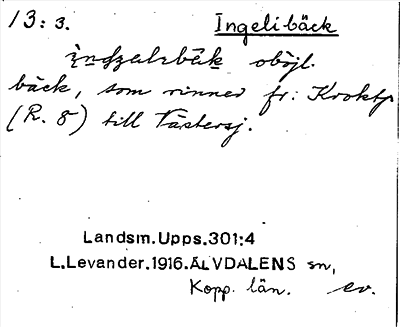 13: 3. Ingelibäck
oböjl.
bäck, som rinner fr: Kroktj
(R. 8) till Västersj.
Landsm.Upps.301:4
L.Levander.1916.ÄLVDALENS sn,
Kopp. län. ev.